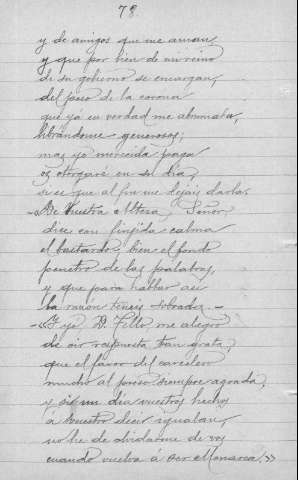 78.
y de amigos que me aman,
y que por bien de mi reino
de su gobierno se encargan,
del peso de la corona
que ya en verdad me abrumaba,
librándome generosos;
mas yo merecida paga
os otorgaré en su dia,
si es que al fin me dejais darla.
—De Vuestra Alteza, Señor,
dice con finjida calma
el bastardo, bien el fondo
penetro de las palabras,
y que para hablar asi
la razon teneis sobrada.—
—«Y yo, D. Tello, me alegro
de oir respuesta tan grata,
que el favor del carcelero
mucho al preso siempre agrada,
y si un dia vuestros hechos
á vuestro decir igualan,
no he de olvidarme de vos
cuando vuelva á ser Monarca.»